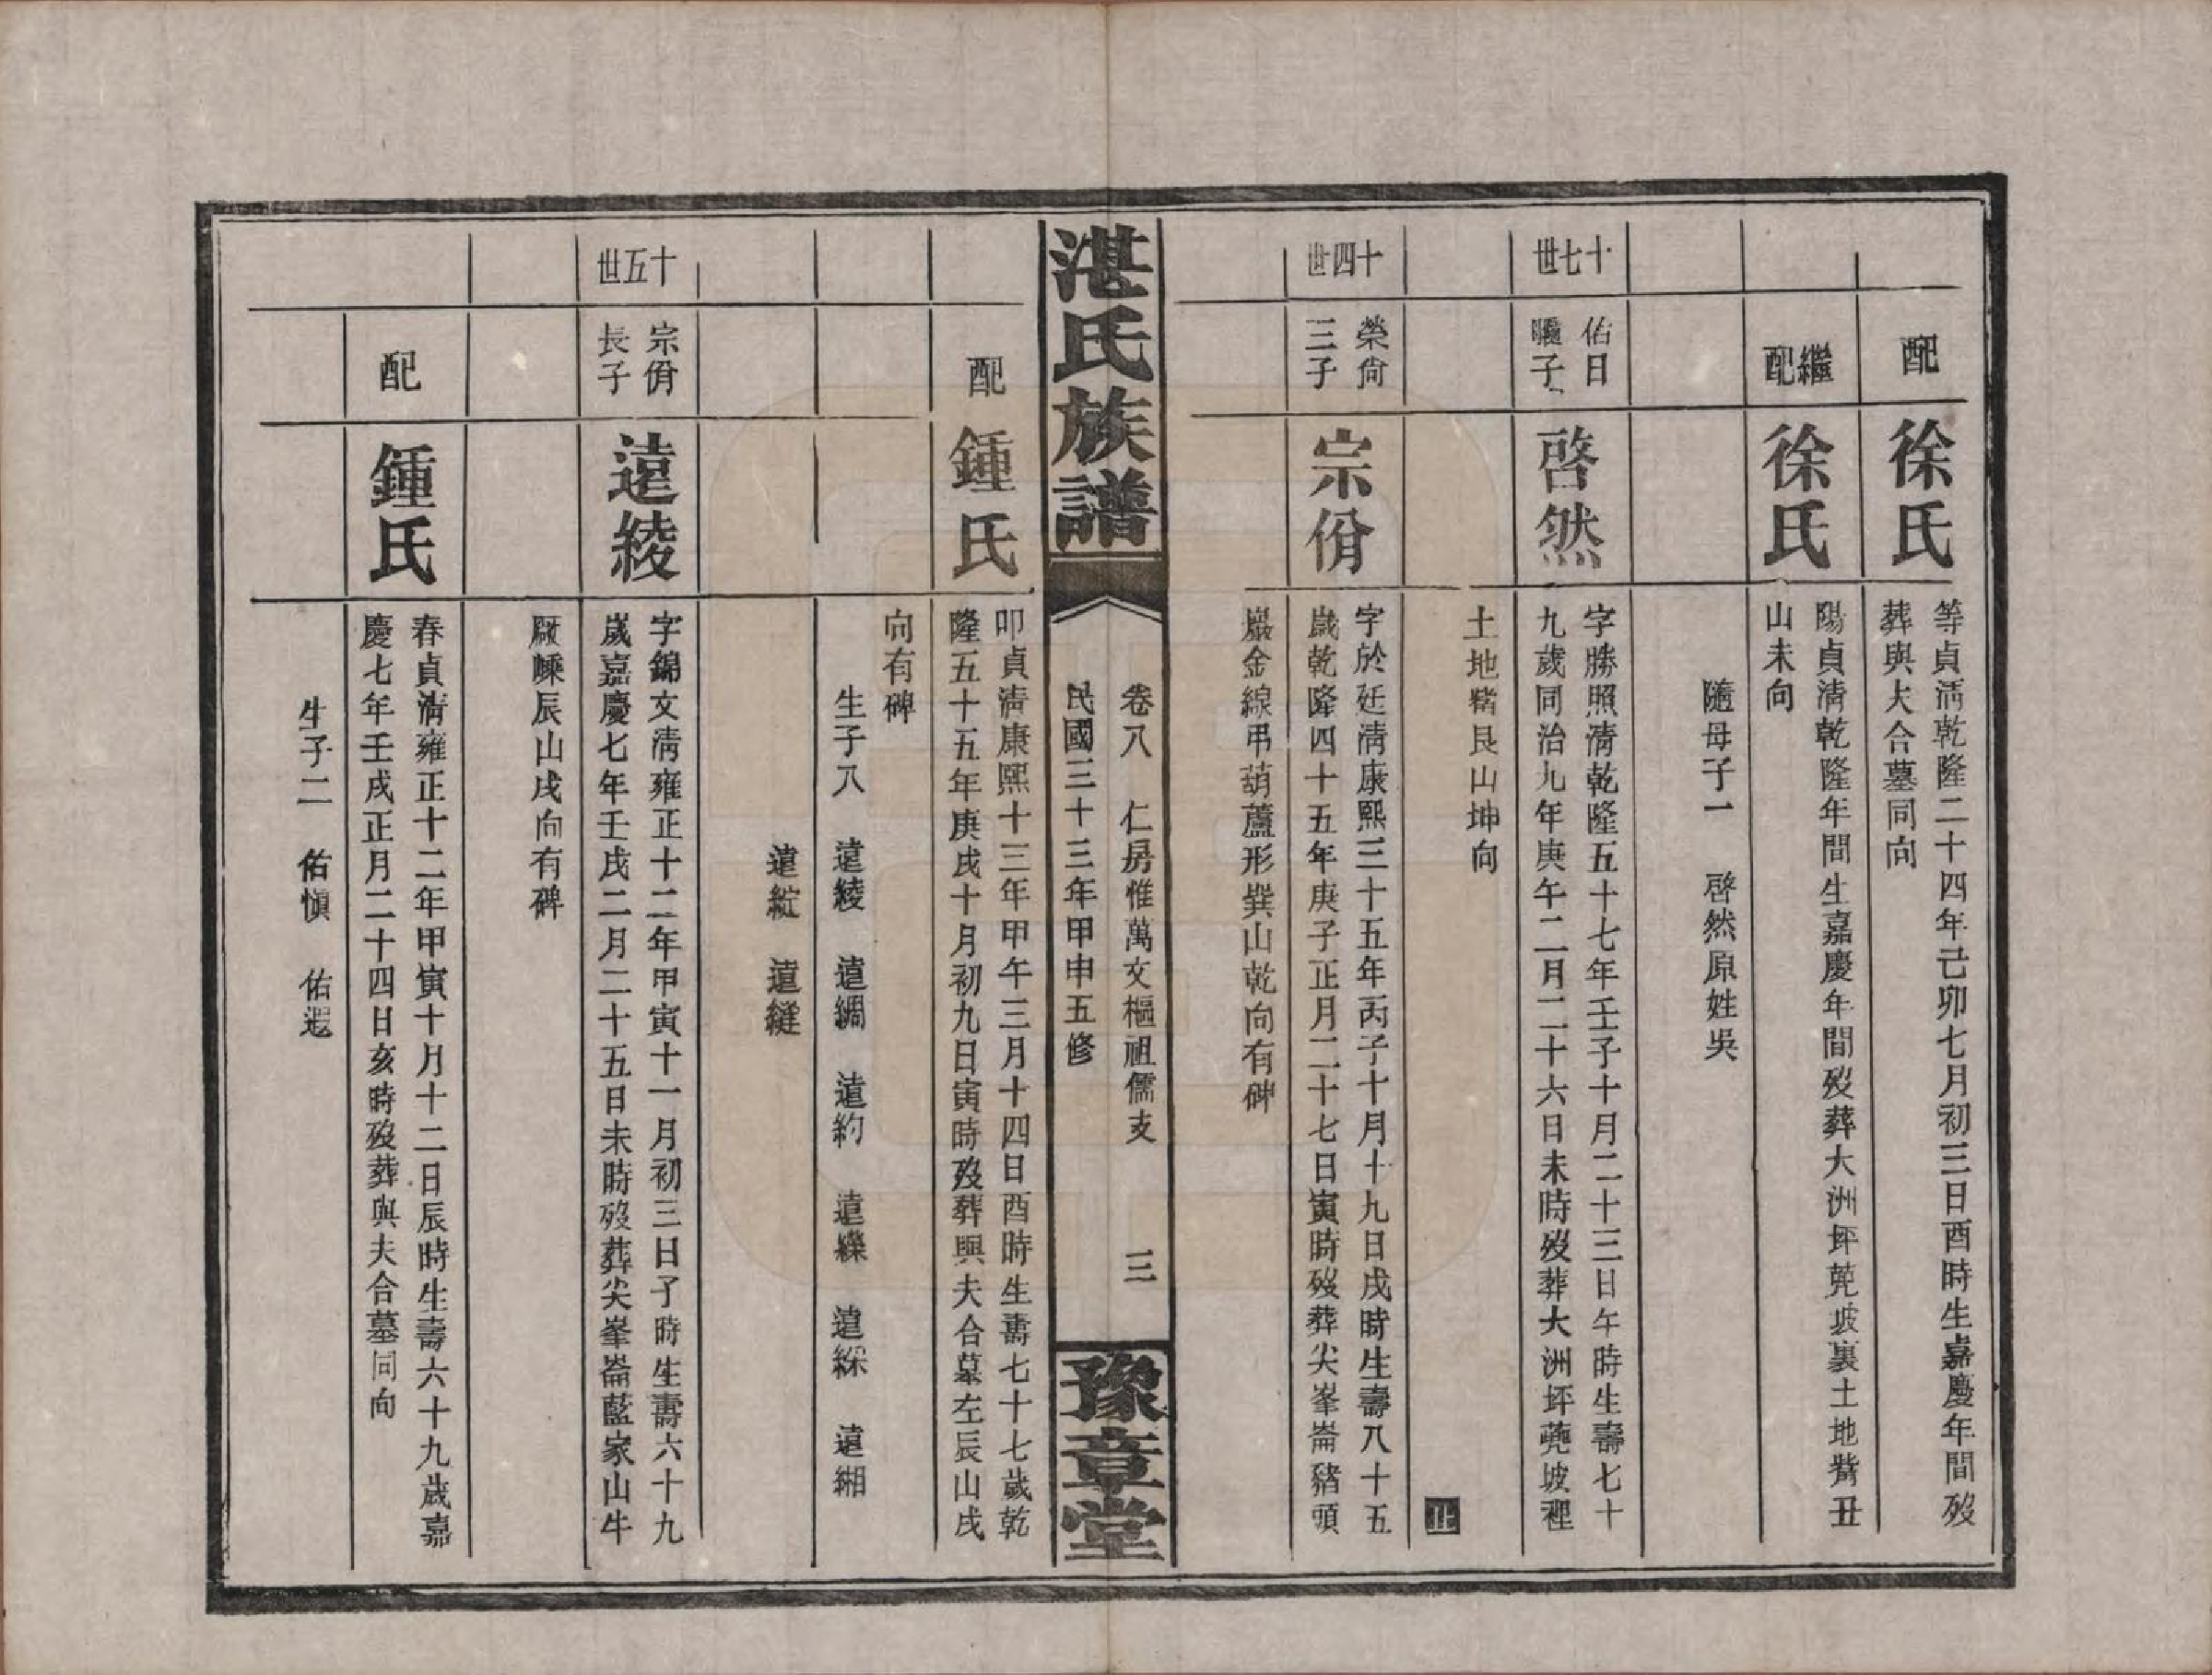 配
徐氏
等貞清乾隆二十四年己卯七月初三日酉時生嘉慶年間歿
葬與夫合墓同向
繼配
徐氏
陽貞清乾隆年間生嘉慶年間歿葬大洲坪堯坡裏土地觜丑
山未向
隨母子一 啓然原姓吳
十七世
佑日
嗣子
啓然
字勝照清乾隆五十七年壬子十月二十三日午時生壽七十
九歲同治九年庚午二月二十六日未時歿葬大洲坪蕘坡裡
土地觜艮山坤向
止
十四世
榮尙
三子
宗佾
字於廷清康熙三十五年丙子十月十九日戌時生壽八十五
歲乾隆四十五年庚子正月二十七日寅時歿葬尖峯崙豬頭
巖金線弔葫蘆形巽山乾向有碑
湛氏族譜
卷八 仁房惟萬文樞祖儒支 三
民國三十三年甲申五修
豫章堂
配
鍾氏
叩貞清康熙十三年甲午三月十四日酉時生壽七十七歲乾
隆五十五年庚戌十月初九日寅時歿葬與夫合墓左辰山戌
向有碑
生子八 遠綾 遠綢 遠約 遠纙 遠綵 遠緗
遠綻 遠縫
十五世
宗佾
長子
遠綾
字錦文清雍正十二年甲寅十一月初三日子時生壽六十九
歲嘉慶七年壬戌二月二十五日未時歿葬尖峯崙藍家山牛
厰㟥辰山戌向有碑
配
鍾氏
春貞清雍正十二年甲寅十月十二日辰時生壽六十九歲嘉
慶七年壬戌正月二十四日亥時歿葬與夫合墓同向
生子二 佑愼 佑遐